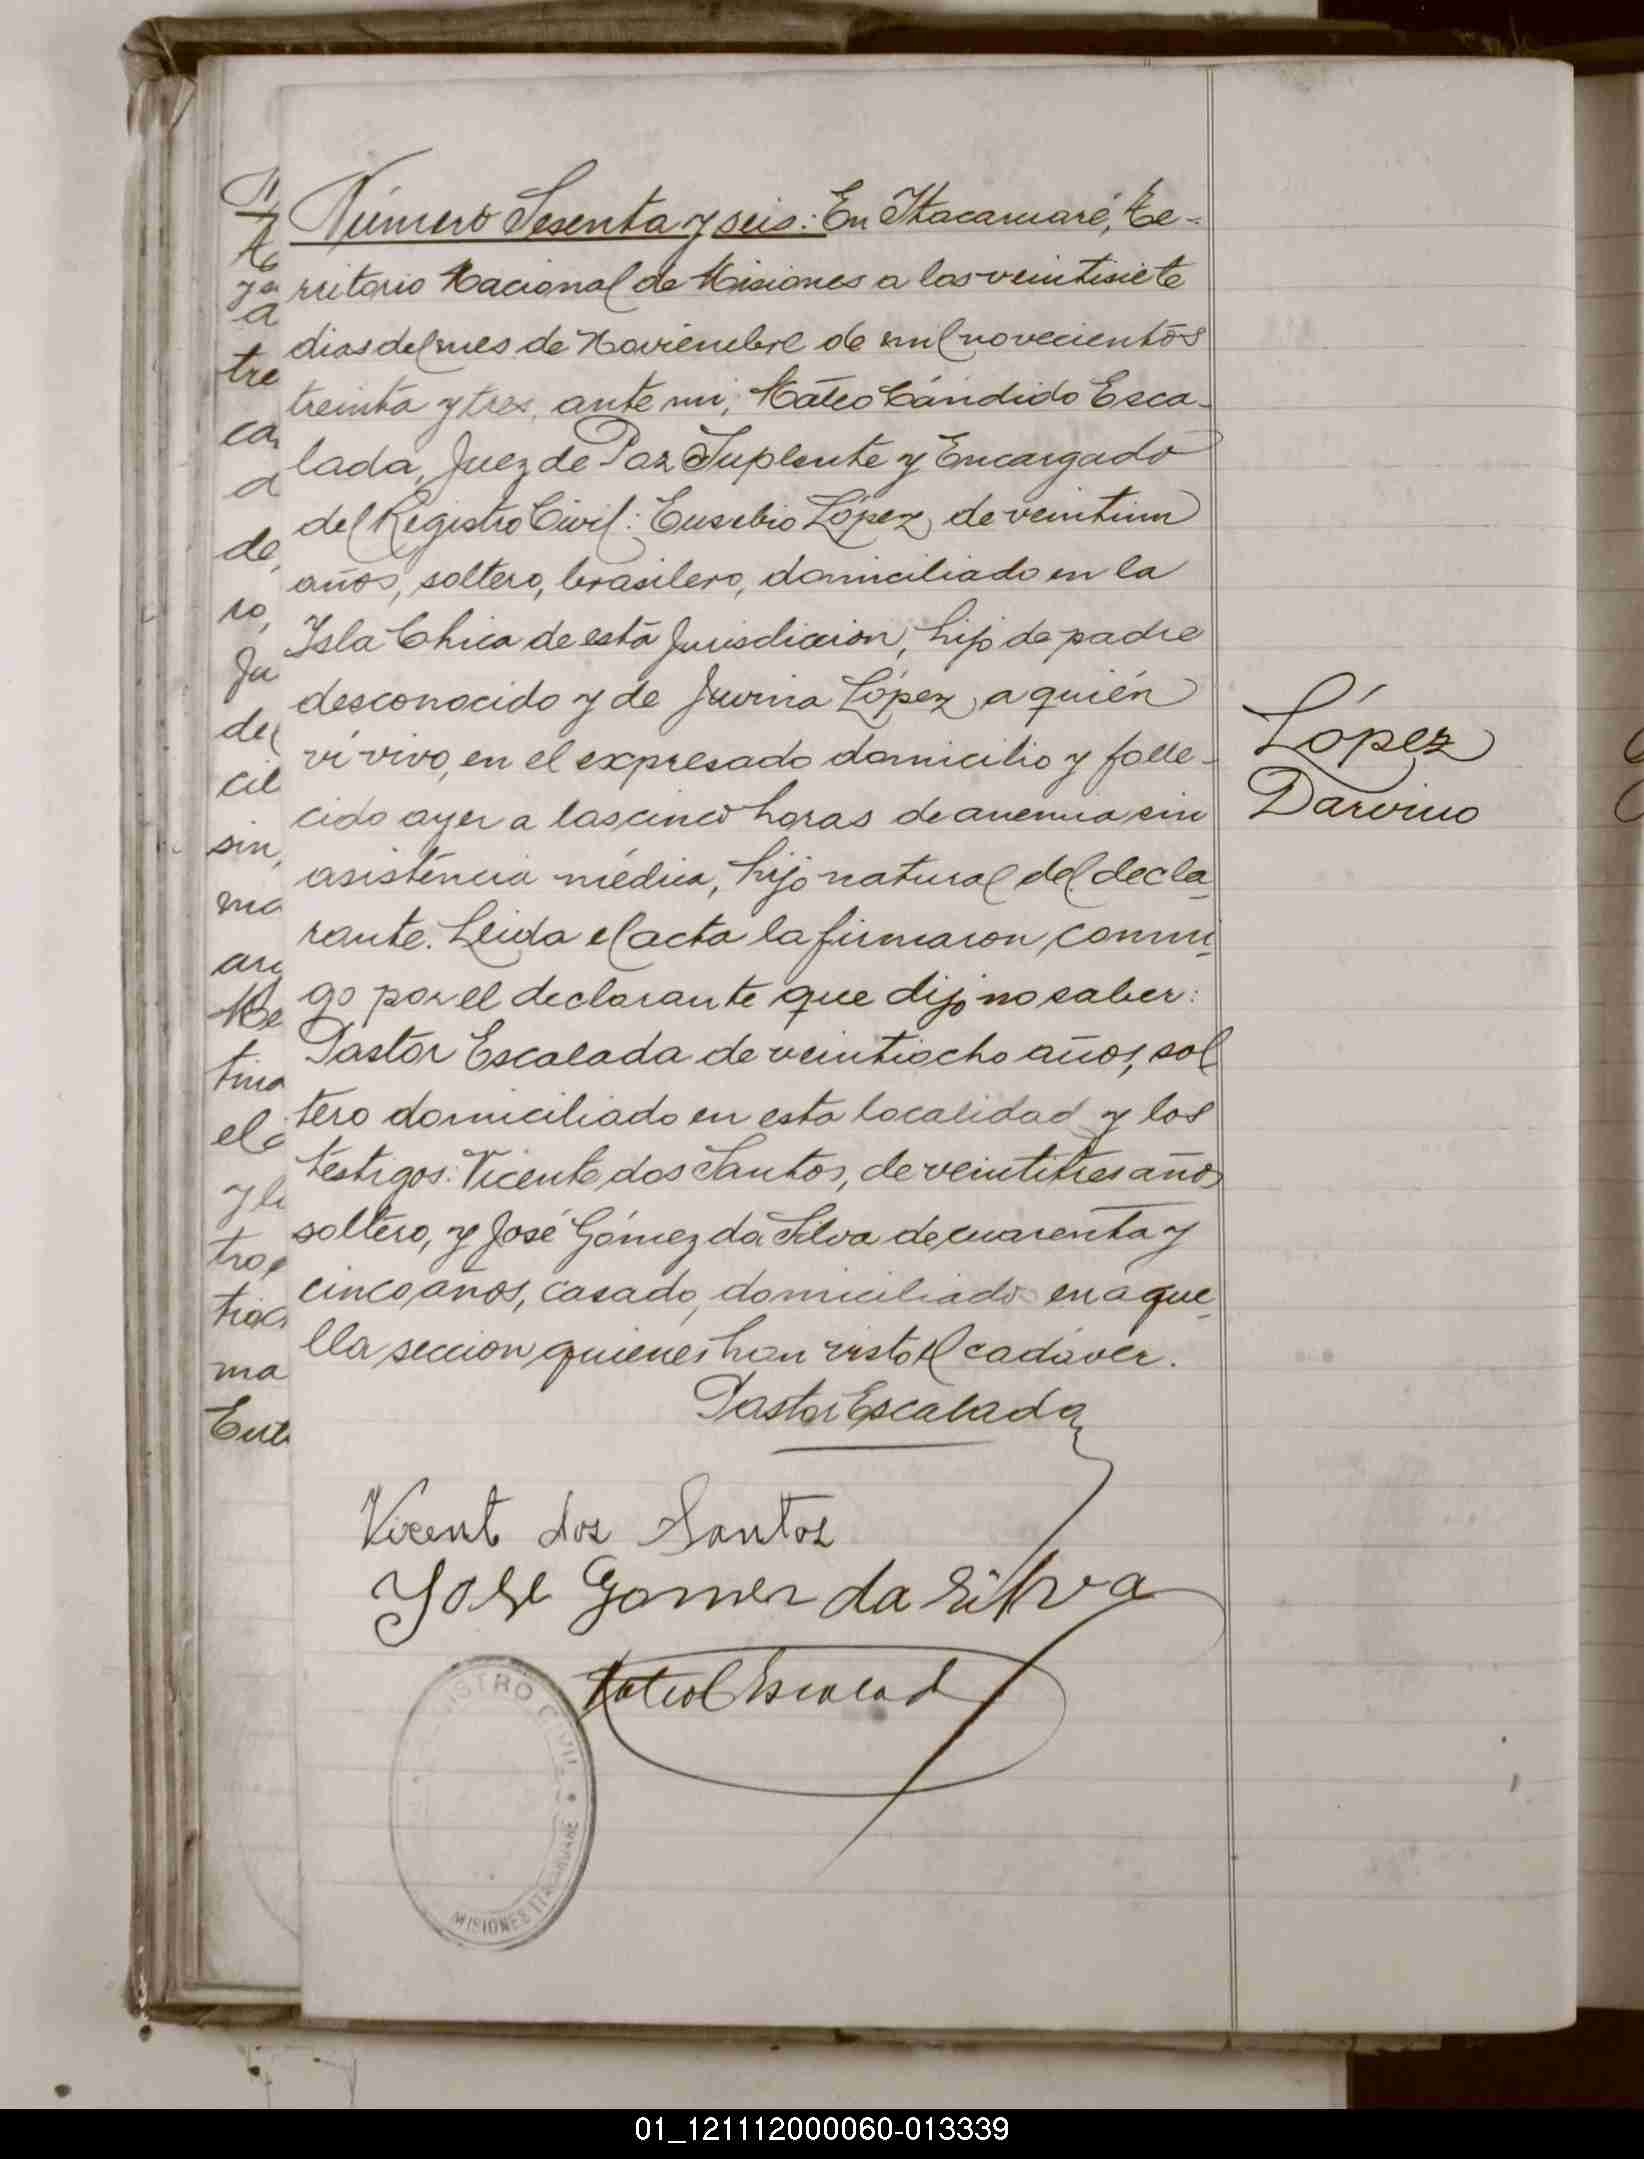 Número Sesenta y seis: En Itacaruaré, Te-
rritorio Nacional de Misiones a los veintisiete
dias del mes de Noviembre de mil novecientos
treinta y tres, ante mi, Mateo Cándido Esca-
lada, Juez de Paz Suplente y Encargado
del Registro Civil: Eusebio López, de veintiun
años, soltero, brasilero, domiciliado en la
Isla Chica de esta Jurisdiccion, hijo de padre
desconocido y de López, a quién
ví vivo, en el expresado domicilio y falle-
cido ayer a las cinco horas de anemia sin
asistencia médica, hijo natural del decla-
rante. Leida el acta la firmaron conmi-
go por el declarante que dijo no saber:
Pastor Escalada de veintiocho años, sol
tero domiciliado en esta localidad y los
testigos: Vicente dos Santos, de veintitres años
soltero, y José Gómez da Silva de cuarenta y
cinco años, casado, domiciliados en aque-
lla seccion quienes han visto el cadáver.
López
Darvino
Pastor Escalada
Vicent dos Santos
Jose Gomez da Silva
REGISTRO CIVIL
MISIONES ITACARUARÉ
tre
ca
a
de,
ro,
Ju
del
cil
sin,
ma
tina
el
tro
ma
01_121112000060-013339